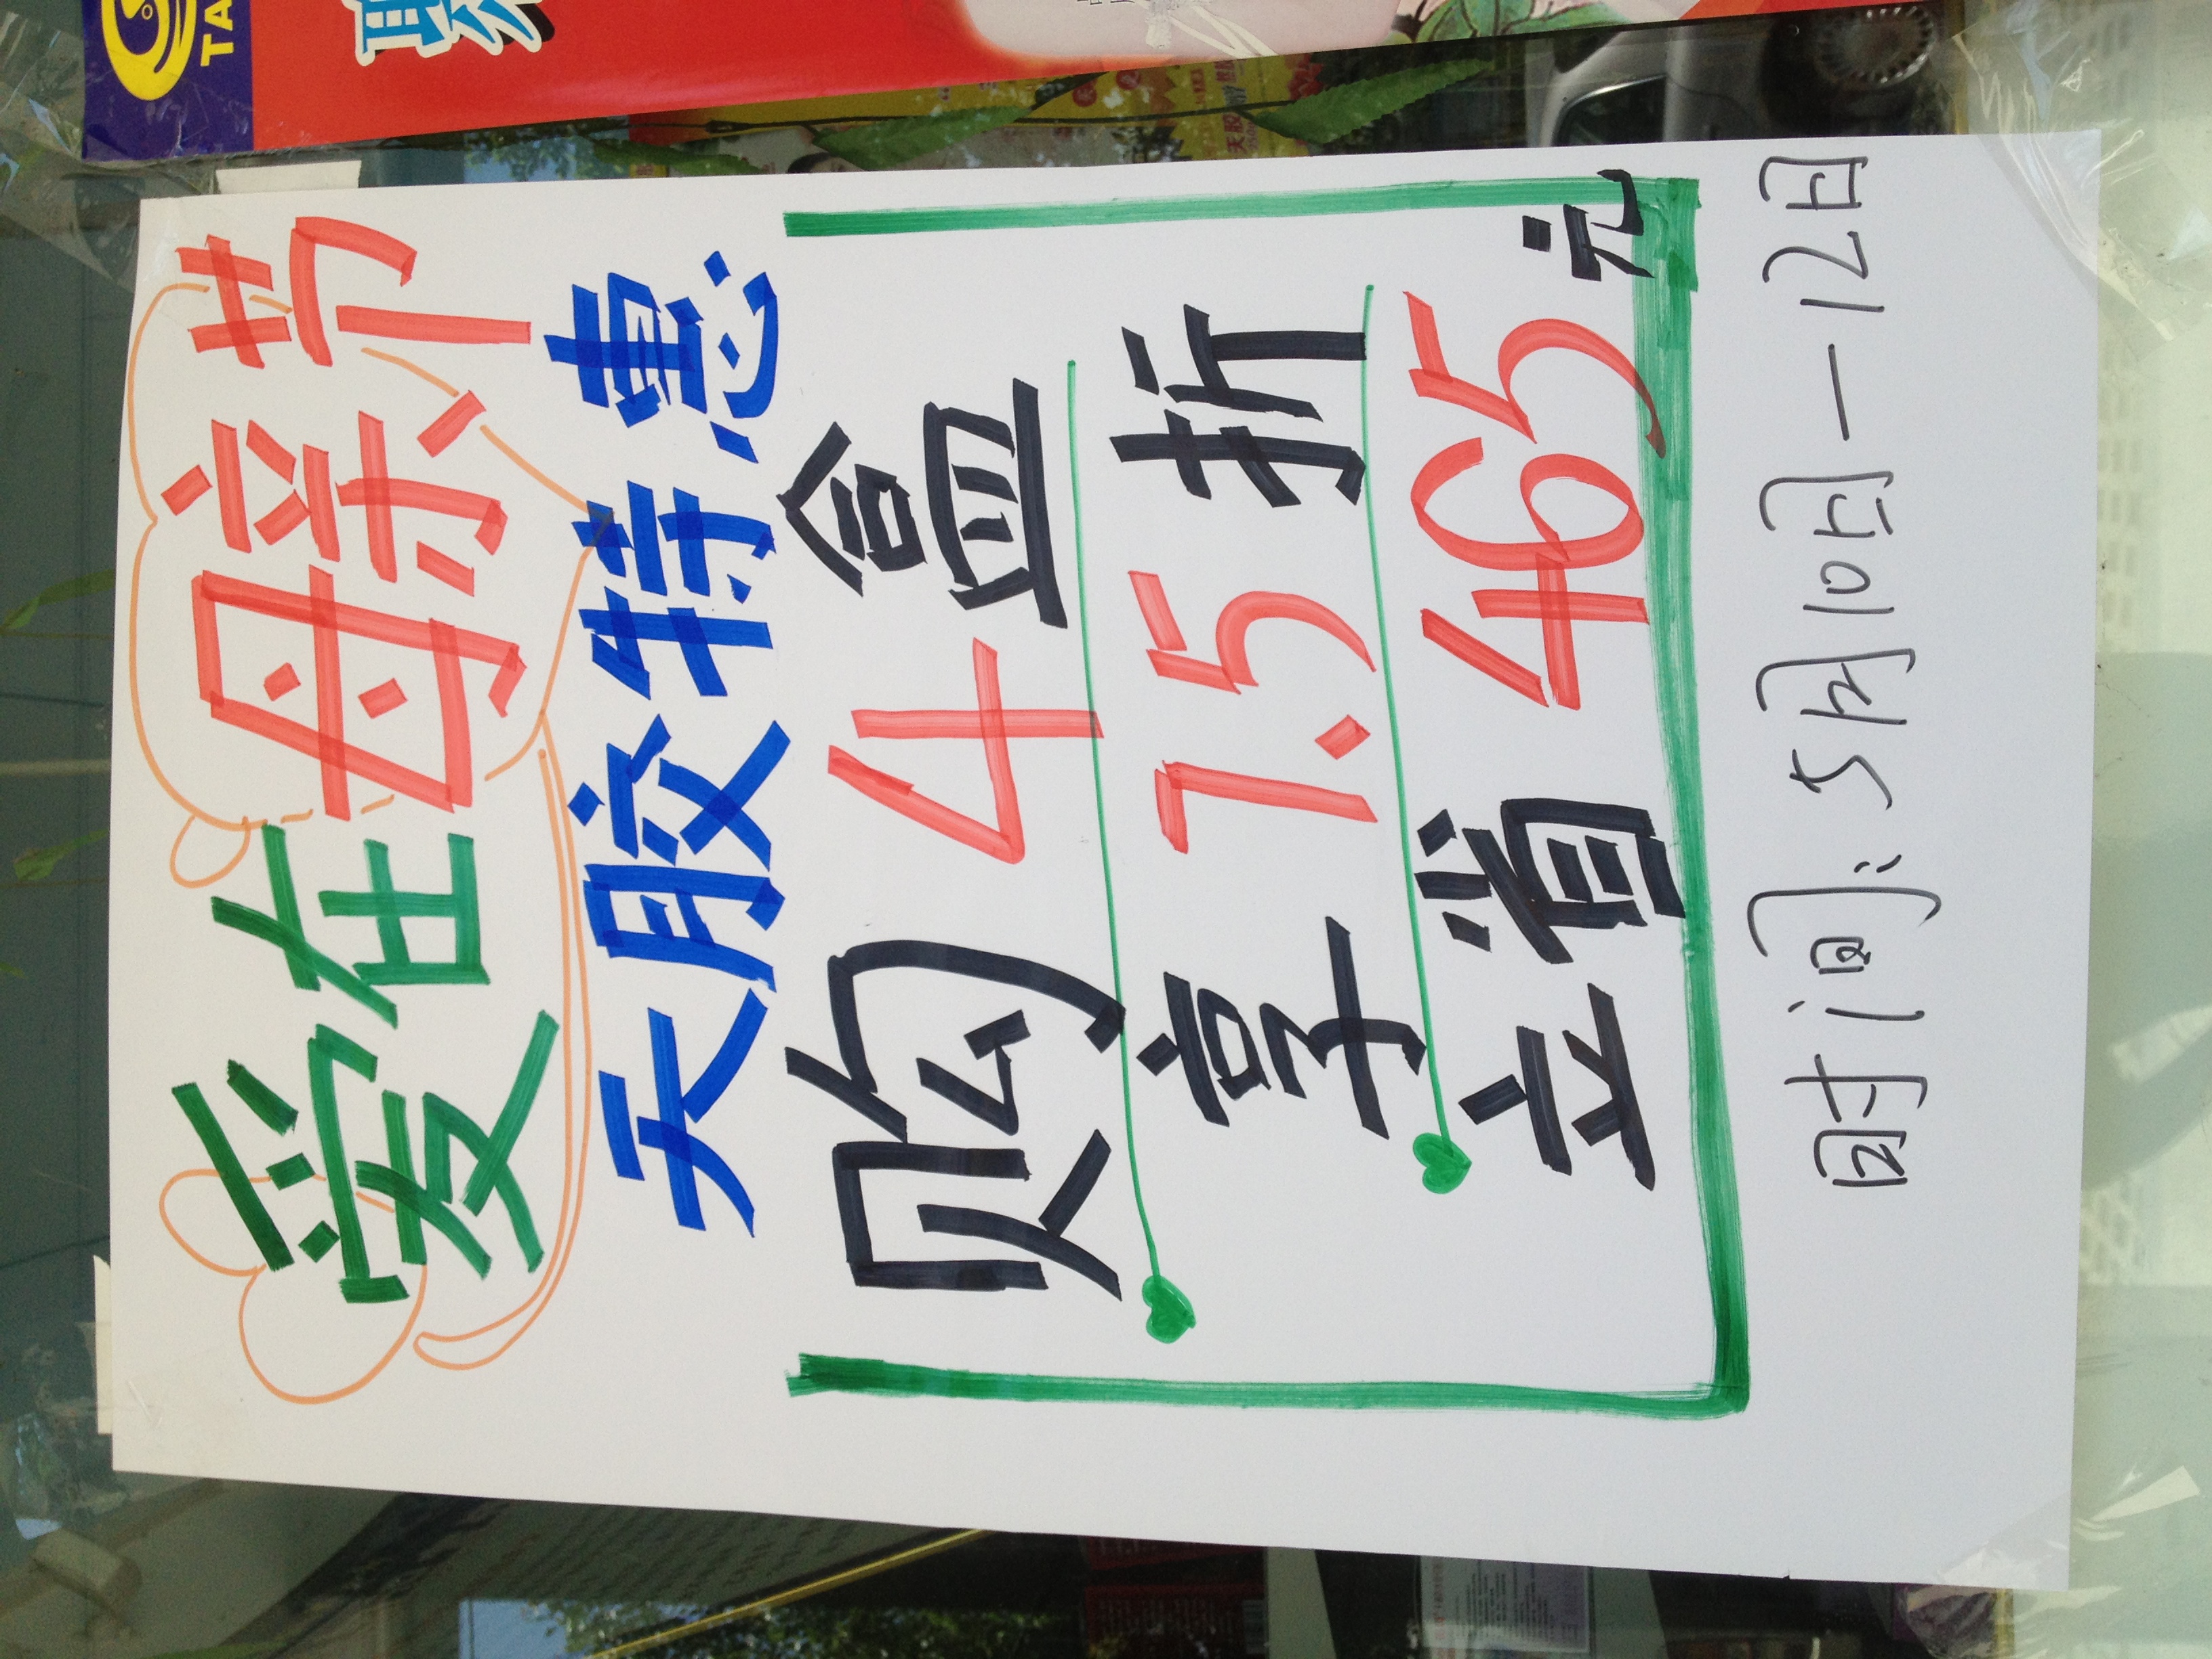 爱在母亲节
天胶特惠
购4盒
享7.5折
立省465元
时间:5月10日—12日
TA